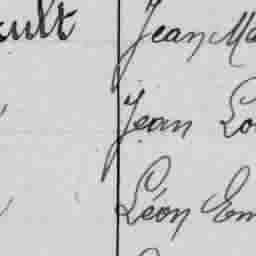 Jean Ma
Jean Lo
Léon Em